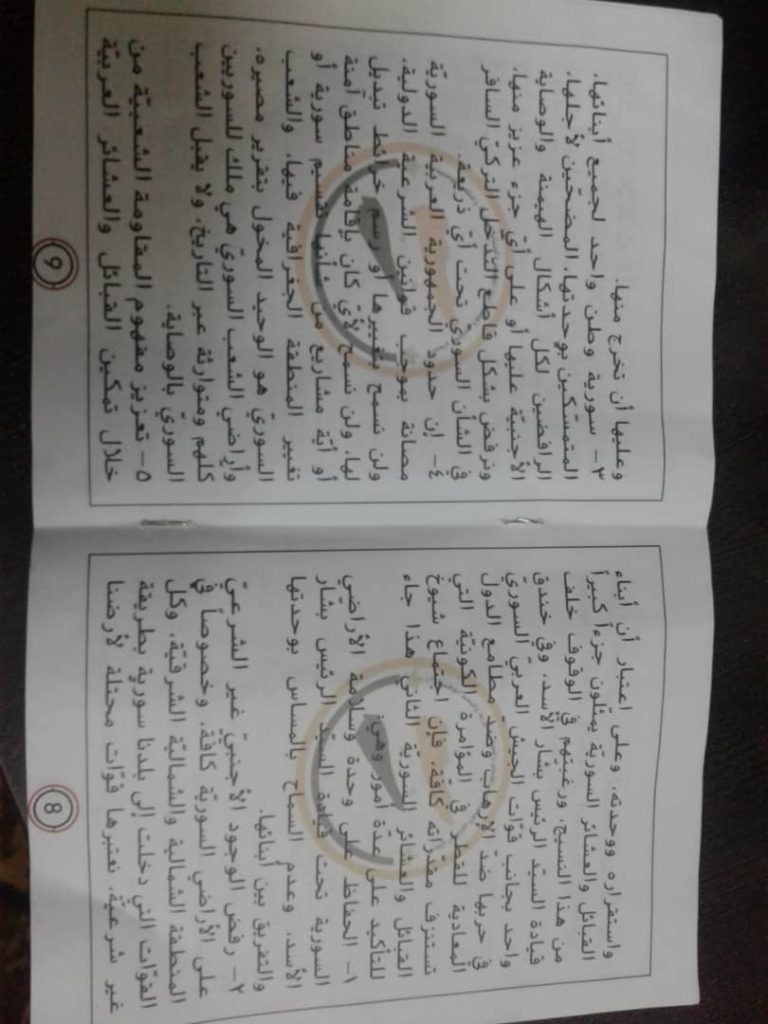 واستقراره ووحدته، وعلى اعتبار أن أبناء
القبائل والعشائر السورية يمثلون جزءاً كبيراً
من هذا النسيج، ورغبتهم في الوقوف خلف
قيادة السيد الرئيس بشار الأسد، وفي خندق
واحد بجانب قوّات الجيش العربي السوري
في حربها ضدّ الإرهاب وضدّ مطامع الدول
المعادية للقطر في المؤامرة الكونيّة التي
تستنزف مقدّراته كافّة، فإن اجتماع شيوخ
القبائل والعشائر السوريّة الثاني هذا جاء
للتأكيد على عدّة أمور وهي:
١- الحفاظ على وحدة وسلامة الأراضي
السورية تحت قيادة السيّد الرئيس بشار
الأسد، وعدم السماح بالمساس بوحدتها
والتفريق بين أبنائها.
٢- رفض الوجود الأجنبيّ غير الشرعيّ
على الأراضي السوريّة كافّة، وخصوصاً في
المنطقة الشمالية والشماليّة الشرقيّة، وكل
القوّات التي دخلت إلى بلدنا سورية بطريقة
غير شرعيّة، نعتبرها قوّات محتلة لأرضنا
8
وعليها أن تخرج منها.
٣- سورية وطن واحد لجميع أبنائها،
المتمسّكين بوحدتها، المضحّين لأجلها،
الرافضين لكل أشكال الهيمنة والوصاية
الأجنبيّة عليها أو على أيّ جزء عزيز منها،
ونرفض بشكل قاطع التدخل التركيّ السافر
في الشأن السوريّ تحت أيّ ذريعة.
٤- إن حدود الجمهورية العربية السوريّة
مصانة بموجب قوانين الشرعية الدولية،
ولن نسمح بتغييرها أو رسم خرائط تبديل
لها، ولن نسمح لأيّ كان بإقامة مناطق آمنة
أو أيّة مشاريع من شأنها تقسيم سورية أو
تغيير المنطقة الجغرافية فيها، والشعب
السوريّ هو الوحيد المخول بتقرير مصيره،
وأراضي الشعب السوريّ هي ملك للسوريين
كلهم ومتوارثة عبر التاريخ، ولا يقبل الشعب
السوريّ بالوصاية.
٥- تعزيز مفهوم المقاومة الشعبيّة من
خلال تمكين القبائل والعشائر العربيّة
9